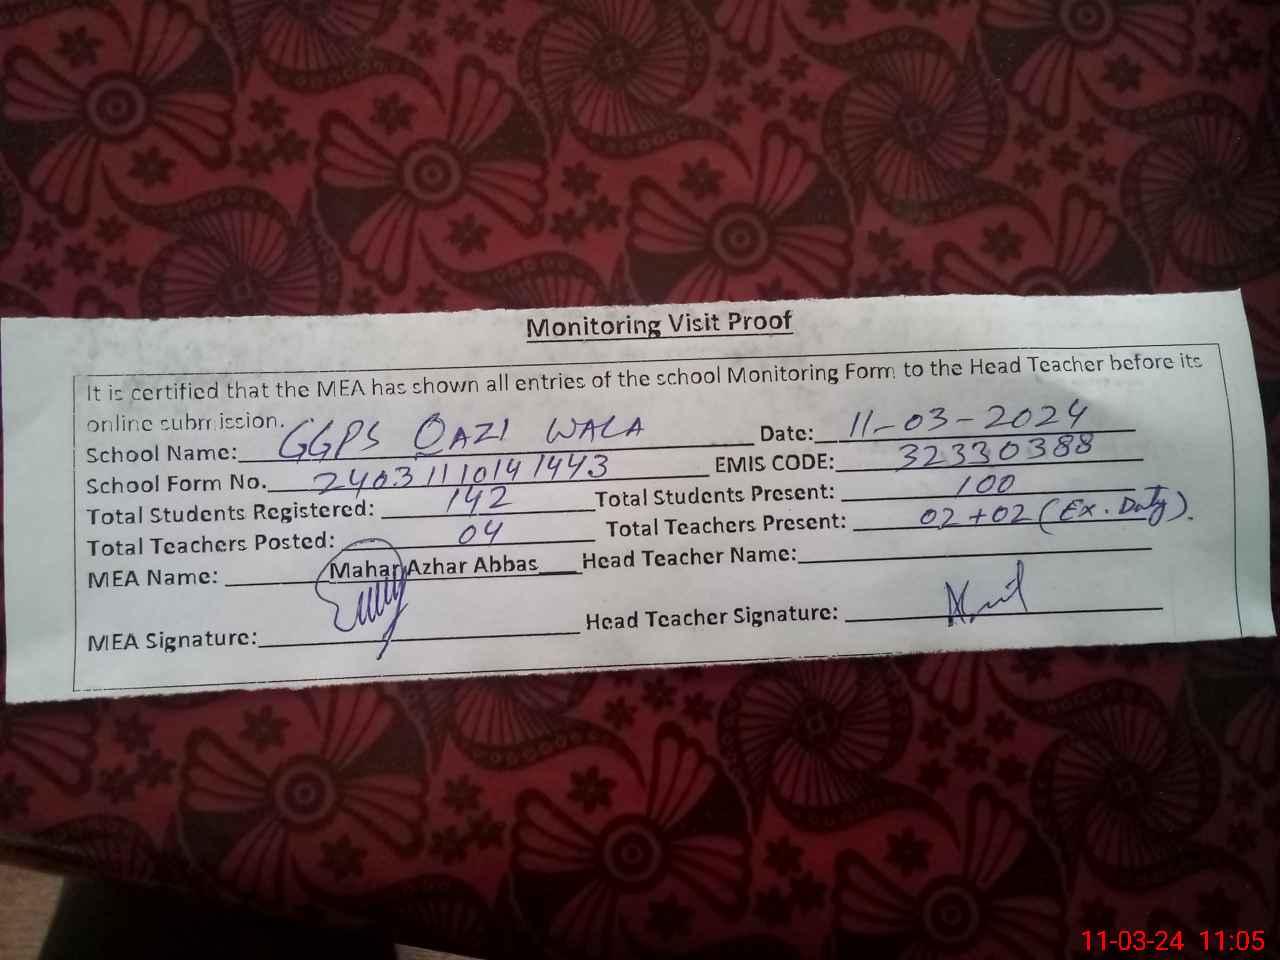 Monitoring Visit Proof
It is certified that the MEA has shown all entries of the school Monitoring Form to the Head Teacher before its
online submission.
School Name: GGPS QAZI WALA Date: 11-03-2024
School Form No. 24031110141443 EMIS CODE: 32330388
Total Students Registered: 142 Total Students Present: 100
Total Teachers Posted: 04 Total Teachers Present: 02+02 (Ex. Duty).
MEA Name: Mahar Azhar Abbas Head Teacher Name:
MEA Signature: Head Teacher Signature:
11-03-24 11:05